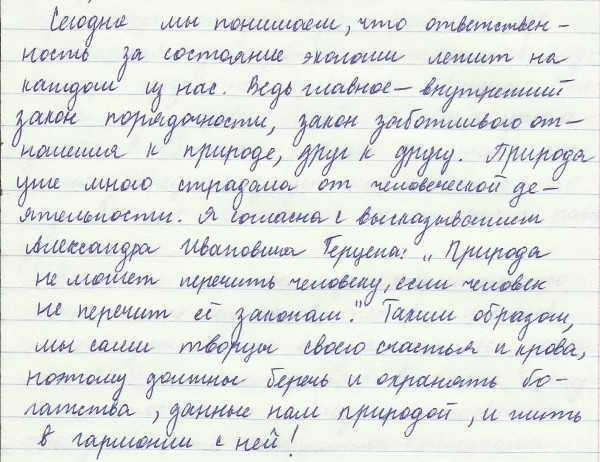 Сегодня мы понимаем, что ответствен-
ность за состояние экологии лежит на
каждом из нас. Ведь главное – внутренний
закон порядочности, закон заботливого от-
ношения к природе, друг к другу. Природа
уже много страдала от человеческой де-
ятельности. Я согласна с высказыванием
Александра Ивановича Герцена: „Природа
не может перечить человеку, если человек
не перечит её законам." Таким образом,
мы сами творцы своего счастья и крова,
поэтому должны беречь и охранять бо-
гатства, данные нам природой, и жить
в гармонии с ней!